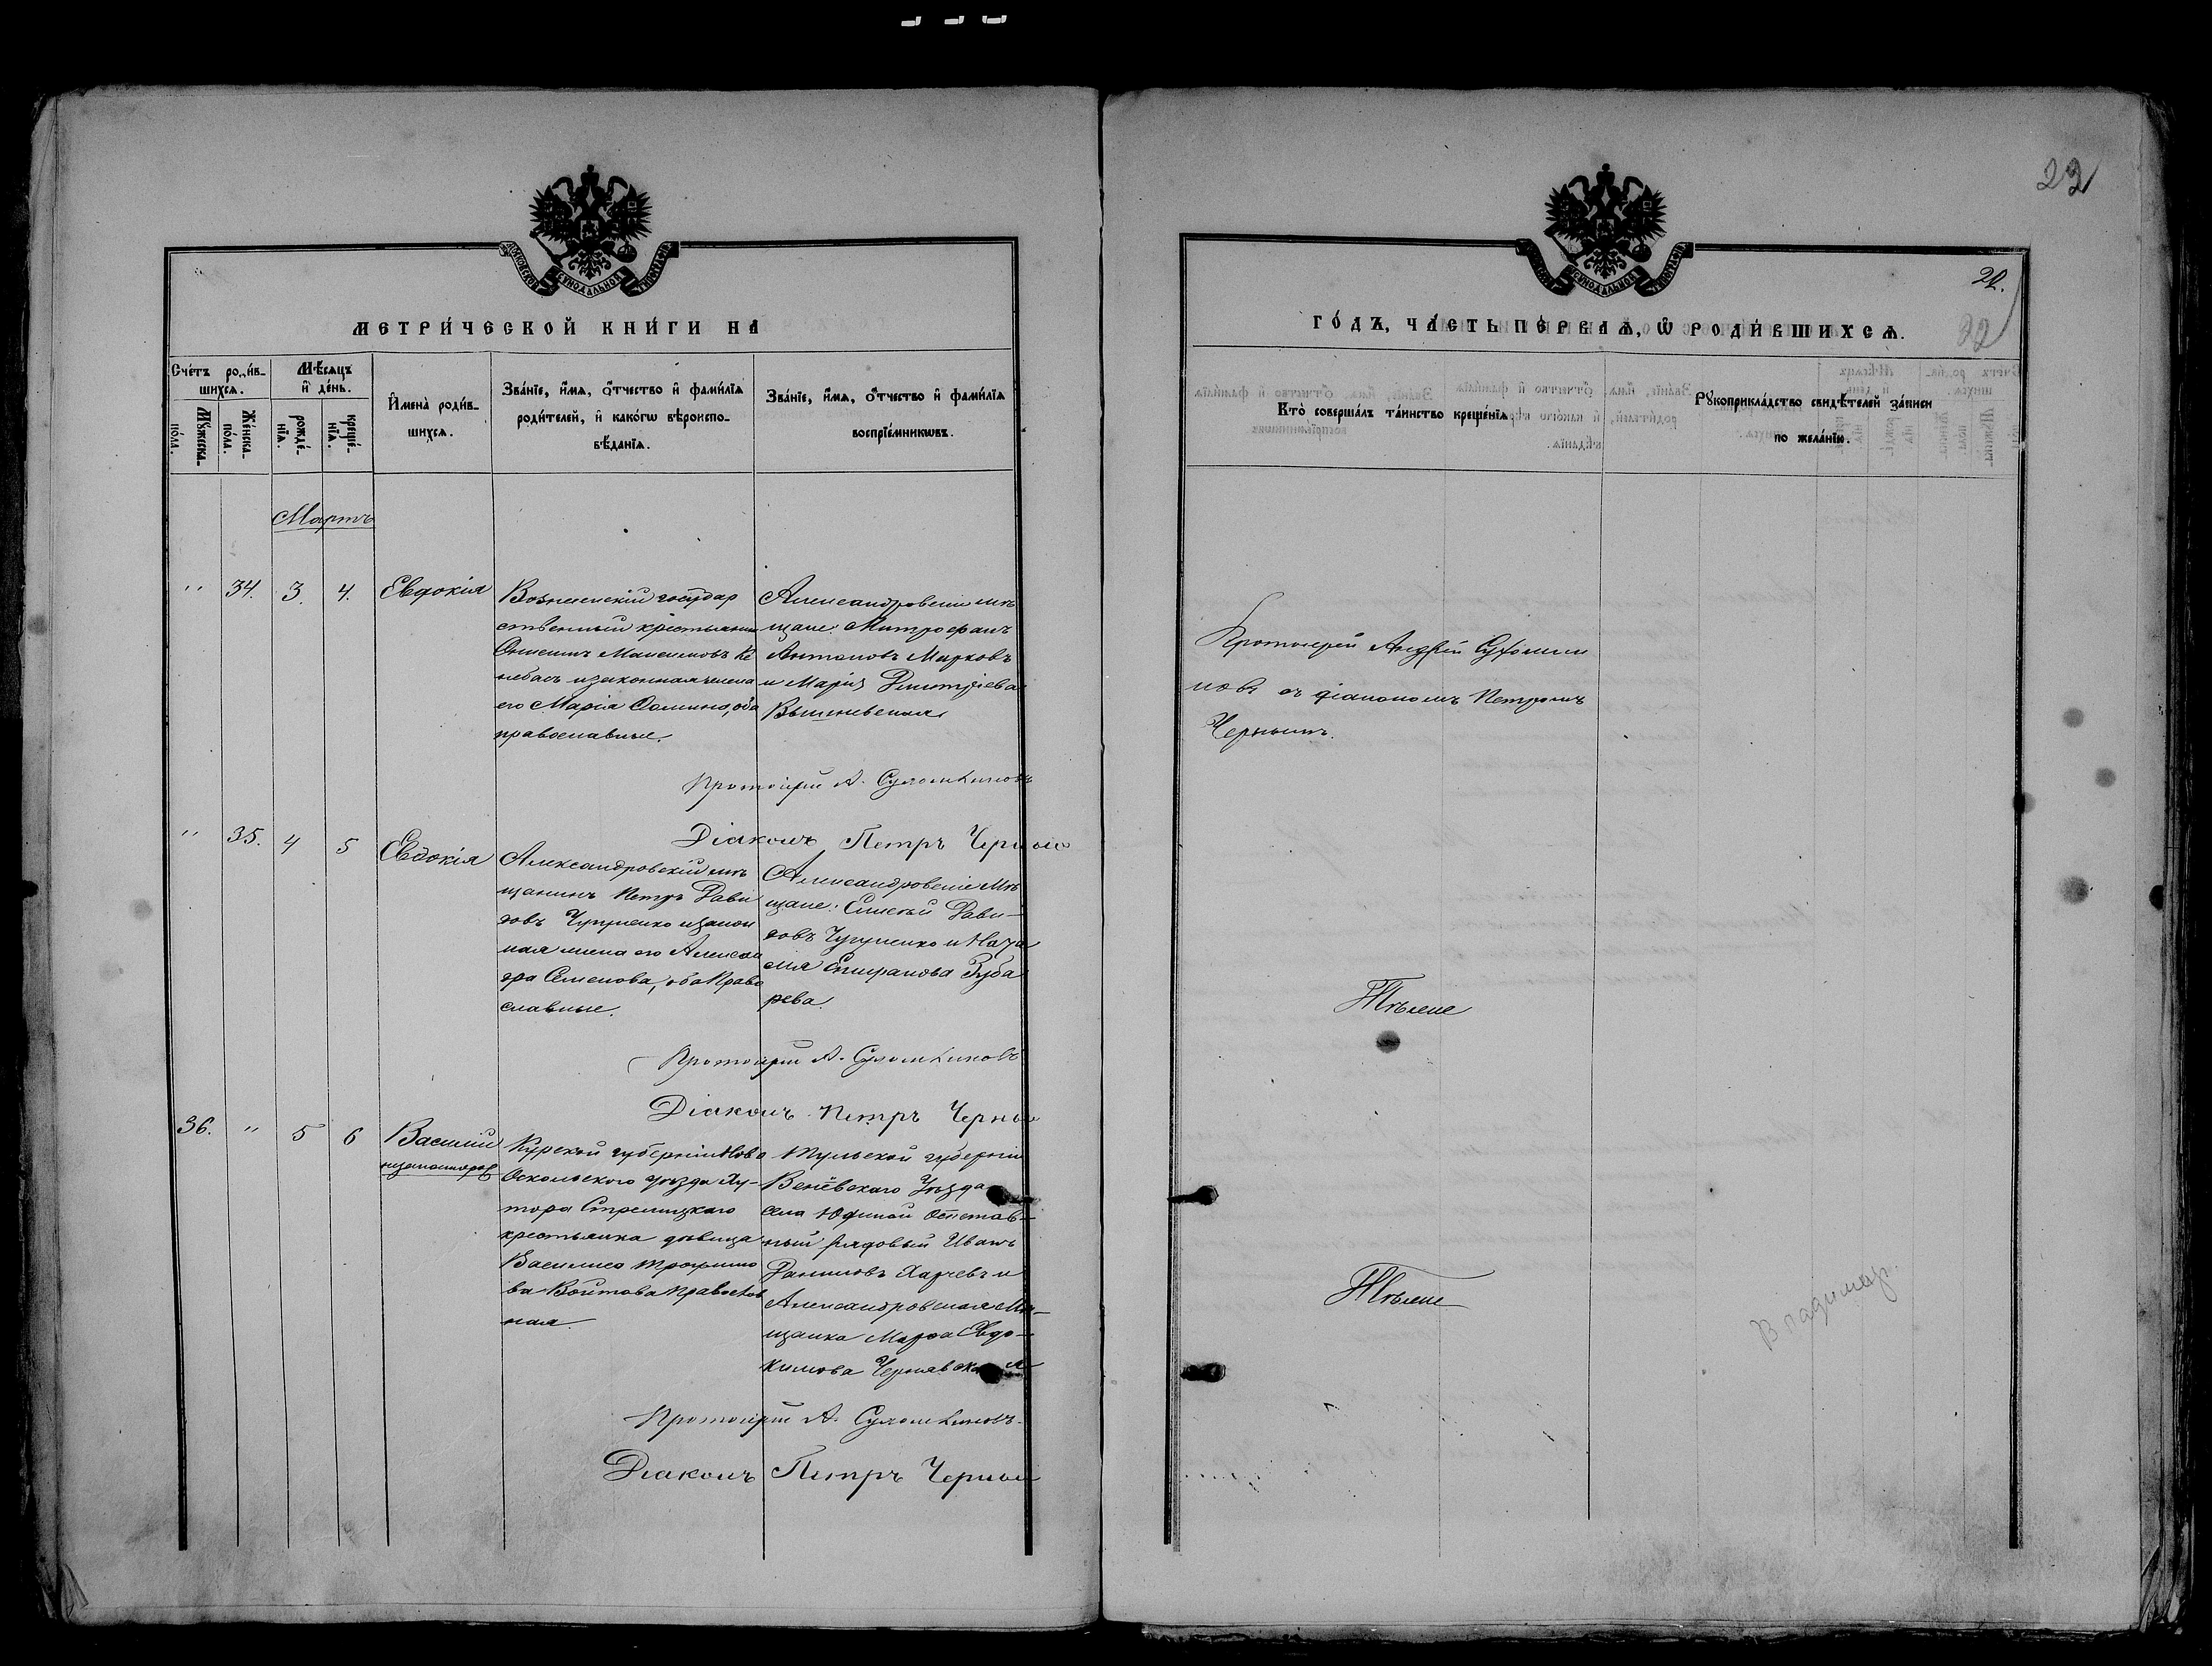 22
МОСКОВСКОЙ СѴНОДАЛЬНОЙ ТИПОГРАФІИ
МЕТРИ́ЧЕСКОЙ КНИ́ГИ НА
Сче́тъ роди́в-
шихсѧ.
Мꙋ́жеска-
пола.
Же́нска-
по́ла.
Мѣ́сѧцъ
и҆ де́нь.
рожде́-
нїѧ.
креще́-
нїѧ.
И҆мена̀ роди́в-
шихсѧ.
Зва́нїе, и҆́мѧ, ѻ҆́тчество и҆ фами́лїѧ
роди́телей, и҆ како́гѡ вѣроиспо-
вѣ́данїѧ.
Зва́нїе, и҆́мѧ, ѻ҆́тчество и҆ фами́лїѧ
воспрїе́мникѡвъ.
Мартъ
" 34. 3. 4. Евдокія
Вознесенскій государ
ственный крестьянин
Онисимъ Максимовъ Ке
небасъ и законная жена
его Марія Фомина, оба
православные.
Александровскіе мѣ
щане: Митрофанъ
Антоновъ Марковъ
и Марія Дмитріева
Протоіерей А. Сухомлиновъ
Діаконъ Петръ Черный
" 35. 4 5 Евдокія
Александровскій мѣ
щанинъ Петръ Дави
довъ Чугуненко и закон
ная жена его Алексан
дра Семенова, оба Право
славные.
Александровскіе Мѣ
щане: Елисей Дави-
довъ Чугуненко и Ната
лія Епифанова Зуба
рева.
Протоіерей А. Сухомлиновъ
Діаконъ Петръ Черный
36. " 5 6 Василій
незаконнорож
Курской губерніи Ново
Оскольскаго уѣзда Ху-
тора Стрелицкаго
крестьянка дѣвица
Василиса Трофимо
ва Войтова Православ
ная.
Тульской губерніи
Венёвскаго Уѣзда
села Юдиной Отстав-
ный рядовый Иванъ
Даниловъ Харчевъ и
Александровская Мѣ-
щанка Марфа Евдо-
кимова Чернявская
Протоіерей А. Сухомлиновъ
Діаконъ Петръ Черный
22
22.
ГО́ДЪ, ЧА́СТЬ ПЕ́РВАѦ, Ѡ҆ РОДИ́ВШИХСѦ.
Кто̀ соверша́лъ та́инство креще́нїѧ
Рꙋкоприкла́дство свидѣ́телей за́писи
по жела́нїю.
Протоіерей Андрей Сухомли
новъ съ діакономъ Петромъ
Чернымъ.
Тѣже
Тѣже
Владимир.